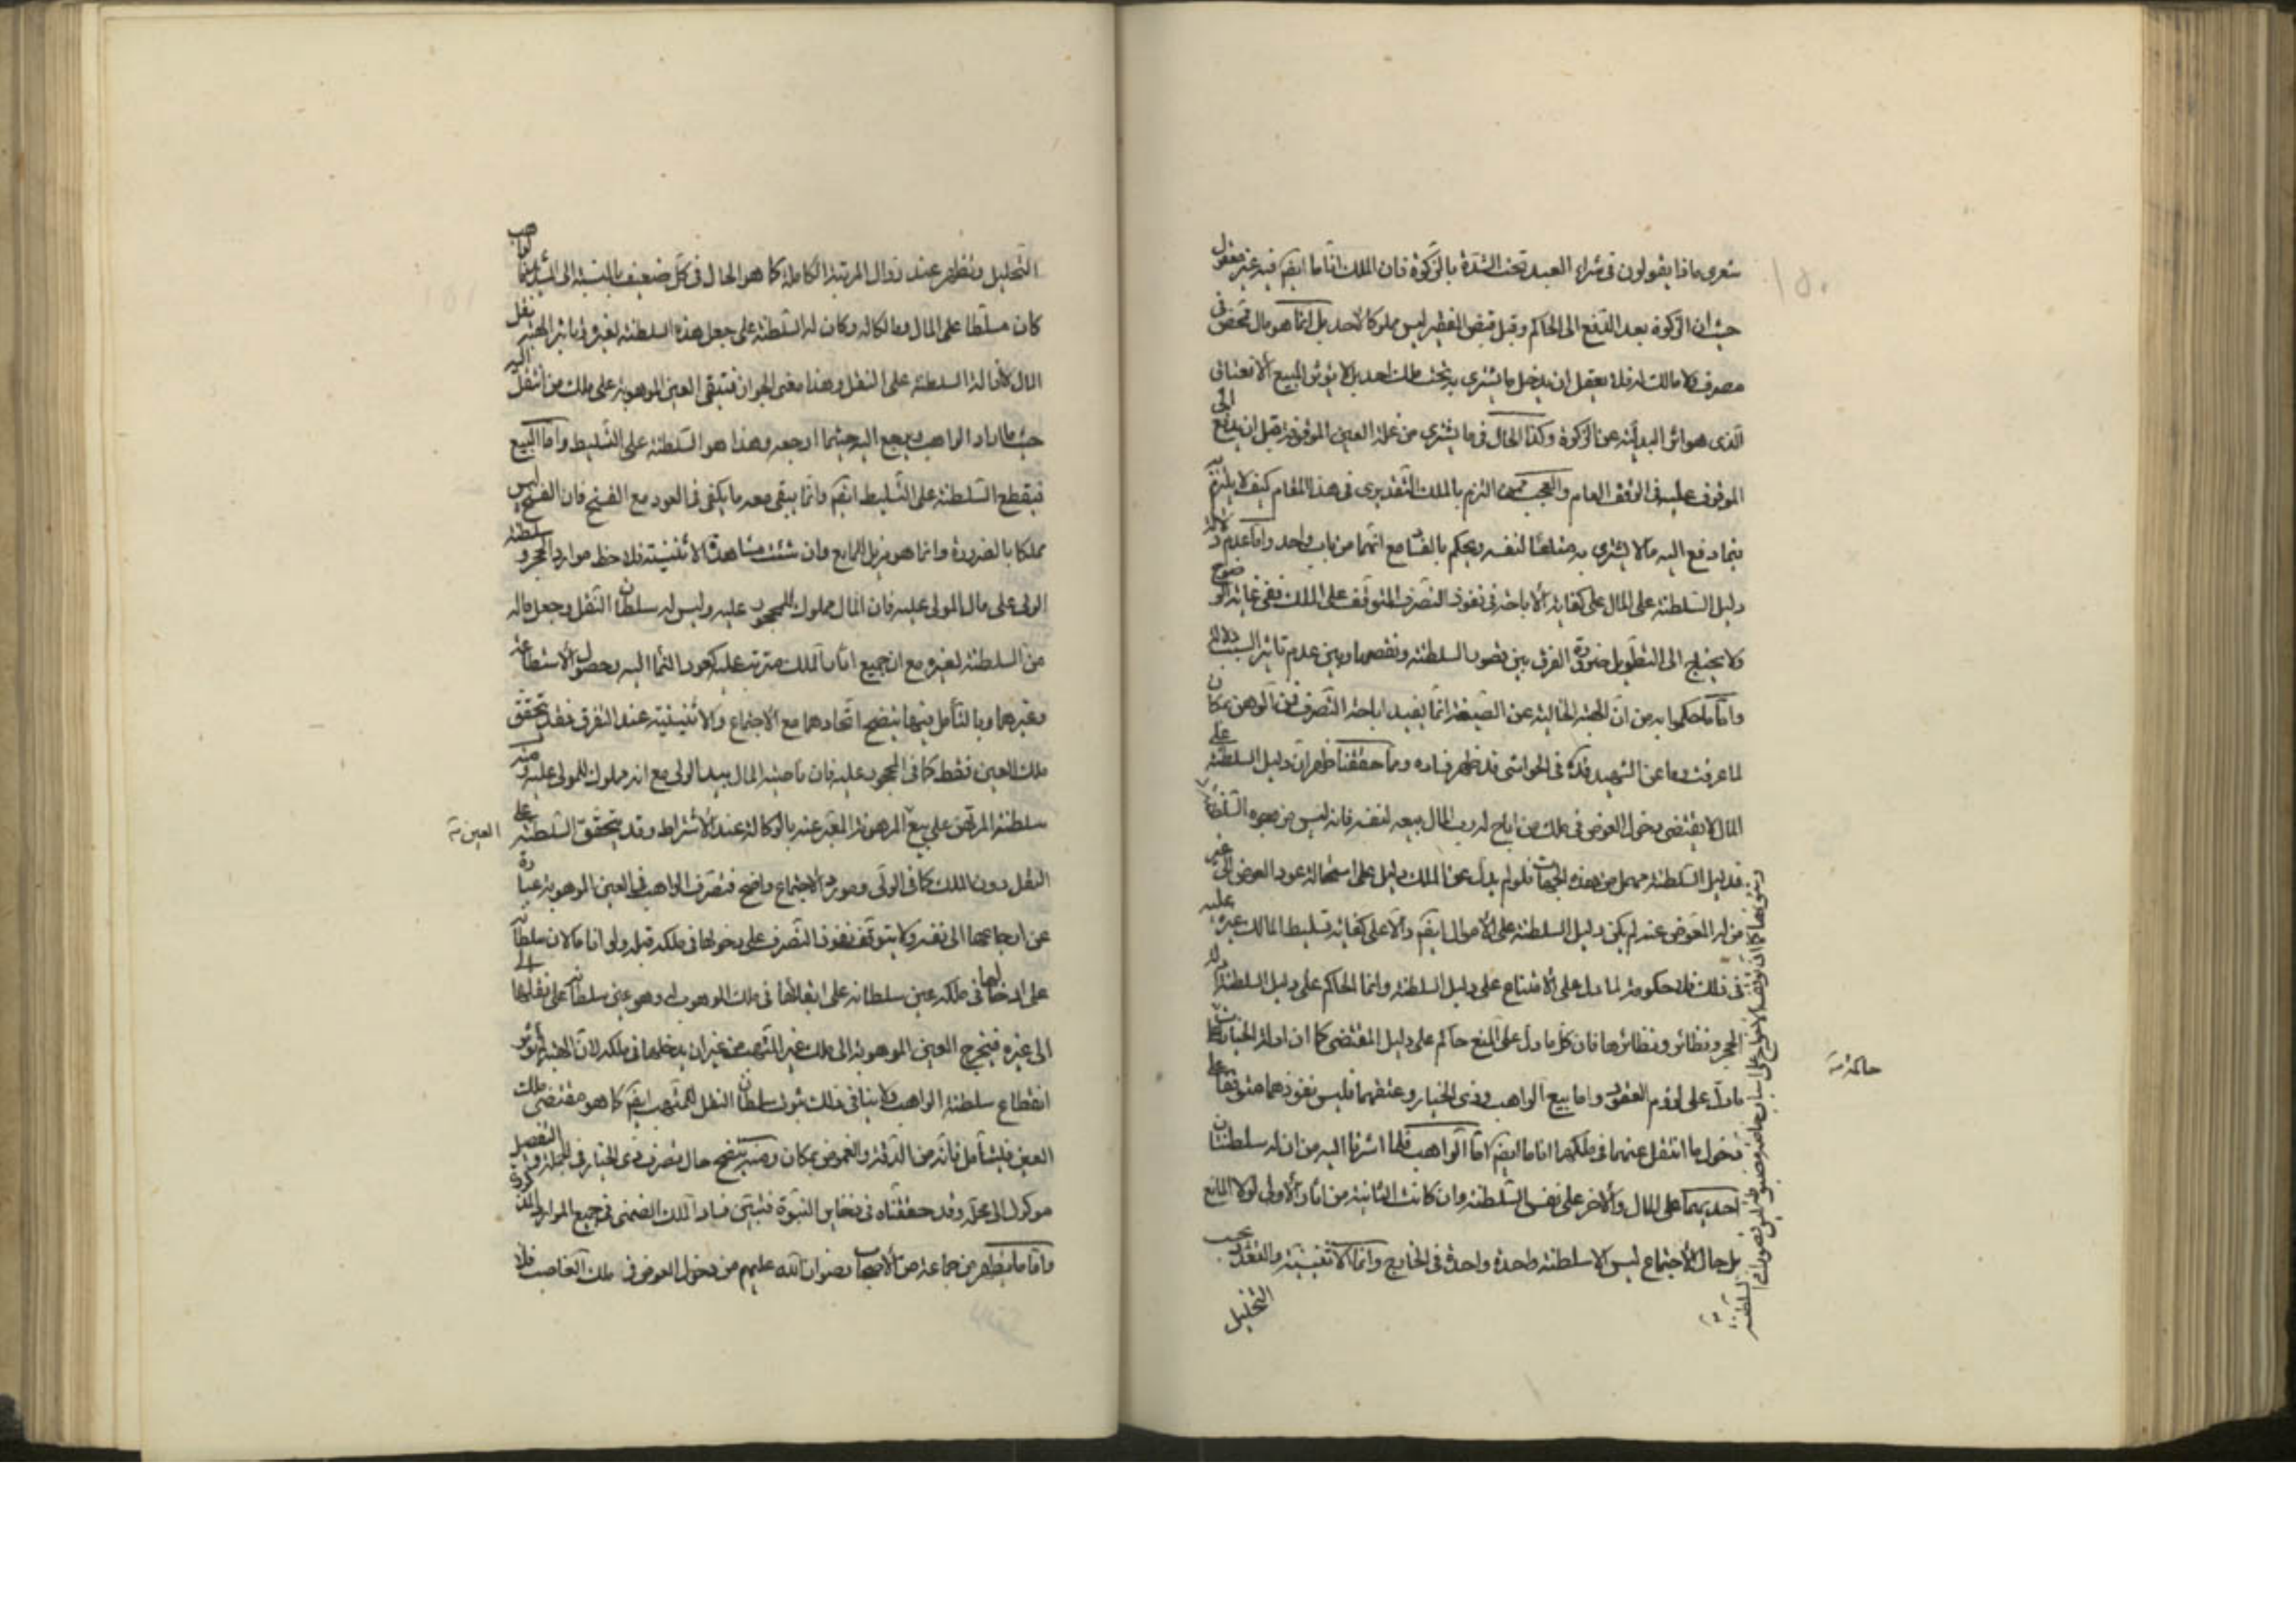 شعرى ماذا يقولون فى شراء العبد تحت الشدة بالزكوة فان الملك انا ما ايضم فيه غير معقول
حيث ان الزكوة بعد الدفع الى الحاكم وقبل قبض الفقير ليس مملوكا لاحد بل انما هو مال تحص فى
مصرف ولا مالك له فلا يعقل ان يدخل ما يشترى به تحت ملك احد بل لا يؤثر البيع الا
الذى هو اثر البدلية عن الزكوة وكذا الحال فى ما يشترى من غلة العين الموقوفة قبل ان يدفع الى
الموقوف عليه فى الوقف العام والعجب ممن التزم بالملك التقديرى فى هذا المقام كيف لا يلتزم به
فيما دفع اليه مالا ليشترى به متاعا لنفسه ويحكم بالفساد مع انهما من باب واحد واما عدم دلالة
دليل السلطنة على المال على كفاية الاباحة فى نفوذ التصرف المتوقف على الملك ففى غاية الوضوح
ولا يحتاج الى التطويل ضرورة الفرق بين قصور السلطنة ونقصها وبين عدم تاثير السبب
واما ما حكموا به من ان الهبة الخالية عن الصيغة انما يفيد اباحة التصرف فمن الوهن بمكان
لما عرفت وما عن الشهيد قده فى الحواشى قد ظهر فساده ومما حققنا ظهر ان دليل السلطنة على
المال لا يقتضى دخول العوض فى ملك من اباح له رب المال بيعه لنفسه فانه ليس من وجوه السلطنة
فدليل السلطنة مهمل من هذه الجهات فلو لم يدل عن الملك دليل على استحالة عود العوض الى غير
من له المعوض عنه لم يكن دليل السلطنة على الاموال ايضم دالا على كفاية تسليط المالك غيره عليه
فى ذلك فلا حكومة لما دل على الامتناع على دليل السلطنة وانما الحاكم على دليل السلطنة ادلة
الحجر ونظائره ونظائرها فان كل ما دل على المنع حاكم على دليل المقتضى كما ان ادلة الخيارات
حاكمة
ما دل على لزوم العقود واما بيع الواهب وذى الخيار وعتقهما فليس نفوذهما متوقفا على
دخول ما انتقل عنهما فى ملكهما انا ما ايضم اما الواهب فلما اشرنا اليه من ان له سلطنتان
احديهما على المال والاخر على نفس السلطنة وان كانت الثانية من اثار الاولى لولا المانع
بل حال الاجتماع ليس الا سلطنة واحدة واحدة فى الخارج وانما الاثنينية والتعدد بحسب
التحليل
التحليل وتظهر عند زوال المرتبة الكاملة كما هو الحال فى كل ضعيف بالنسبة الى الشديد فالواهب
كان مسلطا على المال ومالكا له وكان له السلطنة على جعل هذه السلطنة لغيره وتاثير الهبة نقل
المال لا ازالة السلطنة على النقل وهذا معنى الجواز فتبقى العين الموهوبة على ملك من انتقل اليه
حيث ما اراد الواهب ويرجع اليه حيثما ارجعه وهذا هو السلطنة على التسليط واما البيع
فيقطع السلطنة على التسليط ايضم وانما يبقى معه ما يكفى فى العود مع الفسخ فان الفسخ ليس
مملكا بالضرورة وانما هو مزيل المانع وان شئت مشاهدة الاثنينية فلاحظ موارد الحجر وسلطنة
الولى على مال المولى عليه فان المال مملوك للمحجور عليه وليس له سلطان النقل وجعل ماله
من السلطنة لغيره مع ان جميع اثار الملك مترتب عليه كعود النماء اليه وحصول الاستطاعة
وغيرها وبالتأمل فيها يتضح اتحادهما مع الاجتماع والاثنينية عند التفرق فقد يتحقق
ملك العين فقط كما فى المحجور عليه فان ناصية المال بيد الولى مع انه مملوك للمولى عليه ومنه
سلطنة المرتهن على بيع العين المرهونة المعبر عنه بالوكالة عند الاشتراط وقد يتحقق السلطنة على
النقل دون الملك كما فى الولى ومورد الاجتماع واضح فتصرف الواهب فى العين الموهوبة عبارة
عن ارجاعها الى نفسه ولا يتوقف نفوذ التصرف على دخولها فى ملكه قبله ولو انا ما لان سلطانه
على ادخالها فى ملكه عين سلطانه على ابقائها فى ملك الموهوب له وهو عين سلطانه على نقلها
الى غيره فيخرج العين الموهوبة الى ملك غير المتهب من غير ان يدخلها فى ملكه لان الهبة لم تؤثر
انقطاع سلطنة الواهب ولا ينافى ذلك ثبوت سلطان النقل للمتهب ايضم كما هو مقتضى ملك
العين فليتأمل فانه من الدقة والغموض بمكان ومنه يتضح حال تصرف ذى الخيار فى الجملة والتفصيل
موكول الى محله وقد حققناه فى ذخاير النبوة فتبين فساد الملك الضمنى فى جميع الموارد
واما ما يظهر من جماعة من الاصحاب رضوان الله عليهم من دخول العوض فى ملك الغاصب فلا